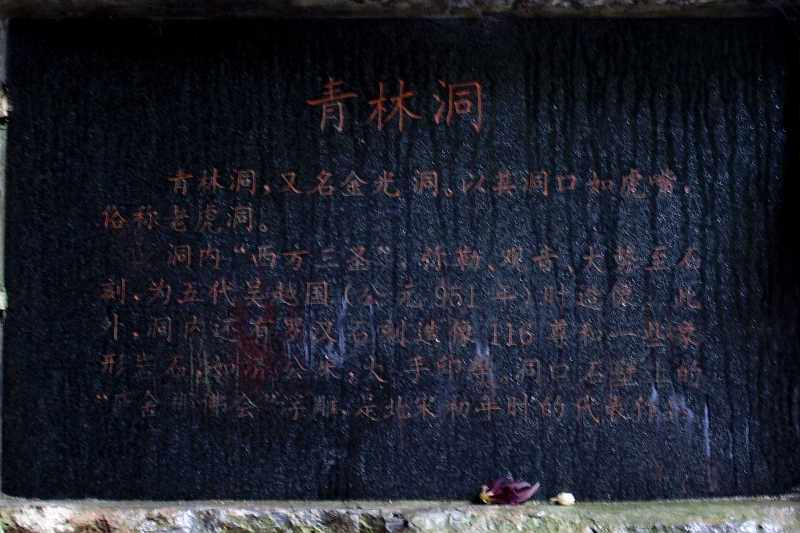 青林洞
青林洞，又名金光洞。以其洞口如虎嘴，
俗称老虎洞。
洞内“西方三圣”、弥勒、观音、大势至石
刻，为五代吴越国（公元951年）时造像。此
外，洞内还有罗汉石刻造像116尊和一些象
形岩石，如济公床，大手印等。洞口石壁上的
“卢舍那佛会”浮雕，是北宋初年时的代表作品。